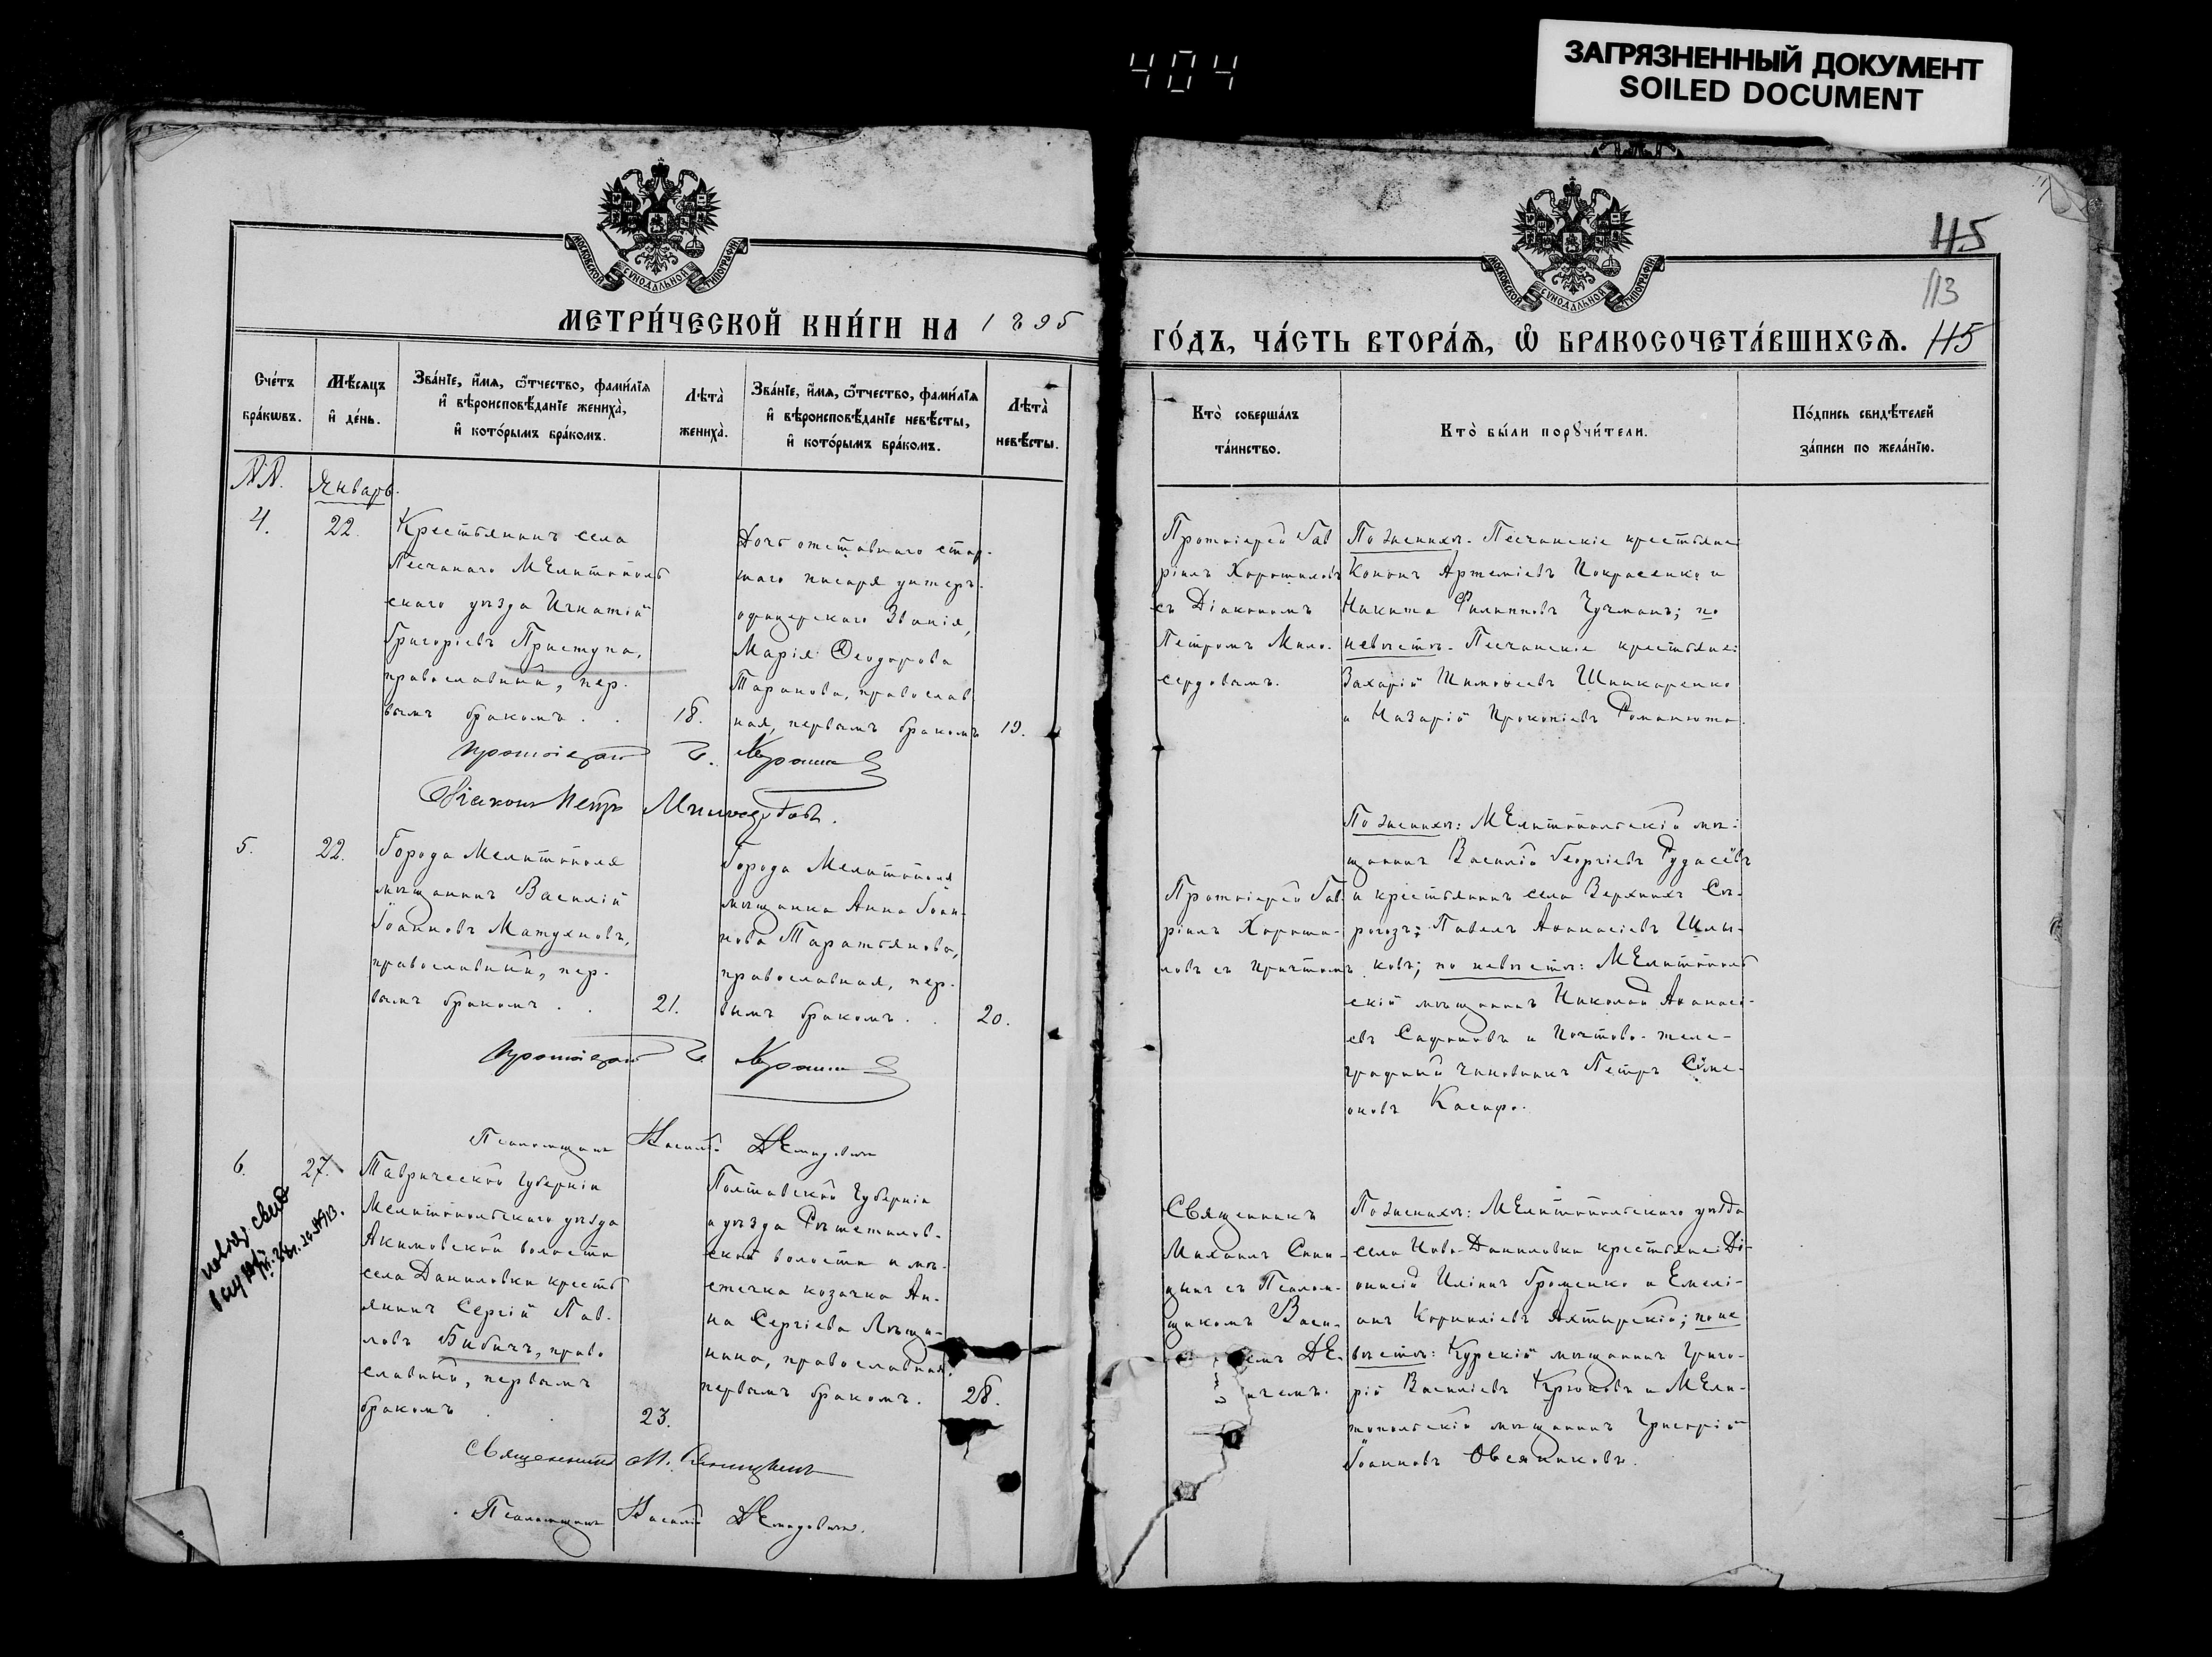 404
ЗАГРЯЗНЕННЫЙ ДОКУМЕНТ
SOILED DOCUMENT
МОСКОВСКОЙ СѴНОДАЛЬНОЙ ТИПОГРАФІИ
МОСКОВСКОЙ СѴНОДАЛЬНОЙ ТИПОГРАФІИ
115
113
МЕТРИ́ЧЕСКОЙ КНИ́ГИ НА 1895
ГО́ДЪ, ЧА́СТЬ ВТОРА́Ѧ, Ѽ БРАКОСОЧЕТА́ВШИХСѦ. 115
Сче́тъ
бра́кѡвъ.
Мѣ́сѧцъ
и҆ де́нь.
Зва́нїе, и҆́мѧ, ѻ҆́тчество, фами́лїѧ
и҆ вѣроисповѣ́данїе жениха̀,
и҆ кото́рымъ бра́комъ.
Лѣ́та̀
жениха̀.
Зва́нїе, и҆́мѧ, ѻ҆́тчество, фами́лїѧ
и҆ вѣроисповѣ́данїе невѣ́сты,
и҆ кото́рымъ бра́комъ.
Лѣ́та̀
невѣ́сты.
Кто̀ соверша́лъ
та́инство.
Кто̀ бы́ли порꙋчи́тели.
По́дпись свидѣ́телей
за́писи по жела́нїю.
№№.
Январь.
4.
22.
Крестьянинъ села
Песчанаго Мелитополь
скаго уѣзда Игнатій
Григоріевъ Приступа,
православный, пер-
вымъ бракомъ . .
18.
Дочь отставнаго стар-
шаго писаря унтеръ-
офицерскаго званія,
Марія Ѳеодорова
Таранова, православ
ная, первымъ бракомъ
19.
Протоіерей Гав
ріилъ Хорошиловъ
съ Діакономъ
Петромъ Мило-
сердовымъ.
По женихѣ. Песчанскіе крестьяне
Кононъ Артеміевъ Покрасенко и
Никита Филипповъ Гучманъ; по
невѣстѣ. Песчанскіе крестьяне:
Захарій Тимоѳеевъ Шинкаренко
и Назарій Прокопіевъ Романюта.
Протоіерей Г.
Діаконъ Петръ Милосердовъ.
5.
22.
Города Мелитополя
мѣщанинъ Василій
Іоанновъ Матуяновъ,
православный, пер-
вымъ бракомъ . .
21.
Города Мелитополя
мѣщанка Анна Іоан-
нова Таратьянова,
православная, пер-
вымъ бракомъ . .
20.
Протоіерей Гав-
ріилъ Хороши-
ловъ съ причтомъ
По женихѣ: Мелитопольскій мѣ-
щанинъ Василій Георгіевъ Рудасёвъ
и крестьянинъ села Верхнихъ Сѣ-
рогозъ Павелъ Аѳанасіевъ Шлы-
ковъ; по невѣстѣ: Мелитополь
скій мѣщанинъ Николай Аѳанасі-
евъ Сафоновъ и Почтово-теле-
графный чиновникъ Петръ Сѷме-
оновъ
Протоіерей Г.
Псаломщикъ Василій Демидовичъ
6.
27.
Таврической губерніи
Мелитопольскаго уѣзда
Акимовской волости
села Даниловки кресть
янинъ Сергій Пав-
ловъ Бибичъ, право
славный, первымъ
бракомъ . .
23.
Полтавской губерніи
и уѣзда Рѣшетилов-
ской волости и мѣ-
стечка козачка Ан-
на Сергіева Лѣщи-
нина, православная,
первымъ бракомъ.
28.
Священникъ
Михаилъ Сини-
цынъ съ Псалом-
щикомъ Васи-
емъ Де-
ичемъ.
По женихѣ: Мелитопольскаго уѣзда
села Ново-Даниловки крестьяне: Ді-
онисій Иліинъ Громенко и Емелі-
анъ Корниліевъ Ахтырскій; по не
вѣстѣ: Курскій мѣщанинъ Григо-
рій Василіевъ Крюковъ и Мели-
топольскій мѣщанинъ Григорій
Іоанновъ Овсяниковъ.
Священникъ М. Синицынъ
Псаломщикъ Василій Демидовичъ.